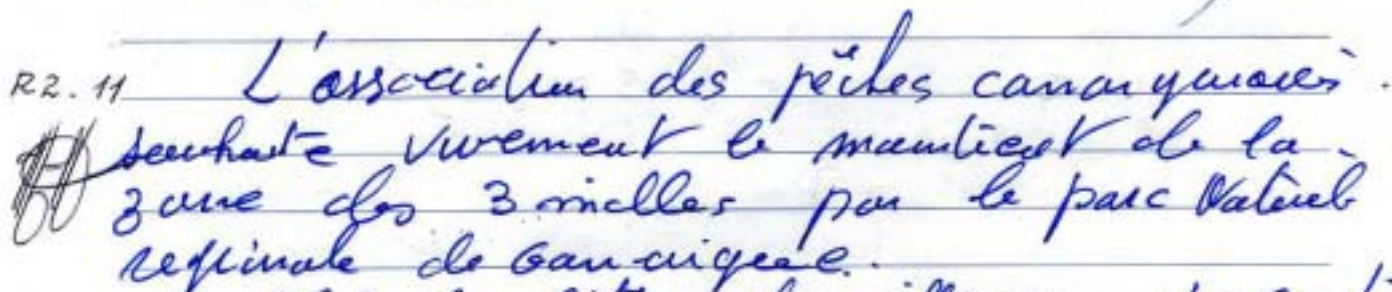 R2.11 L'association des pêches camarguaises.
souhaite vivement le maintient de la
zone des 3 milles par le parc Naturel
regionale de Camargue.